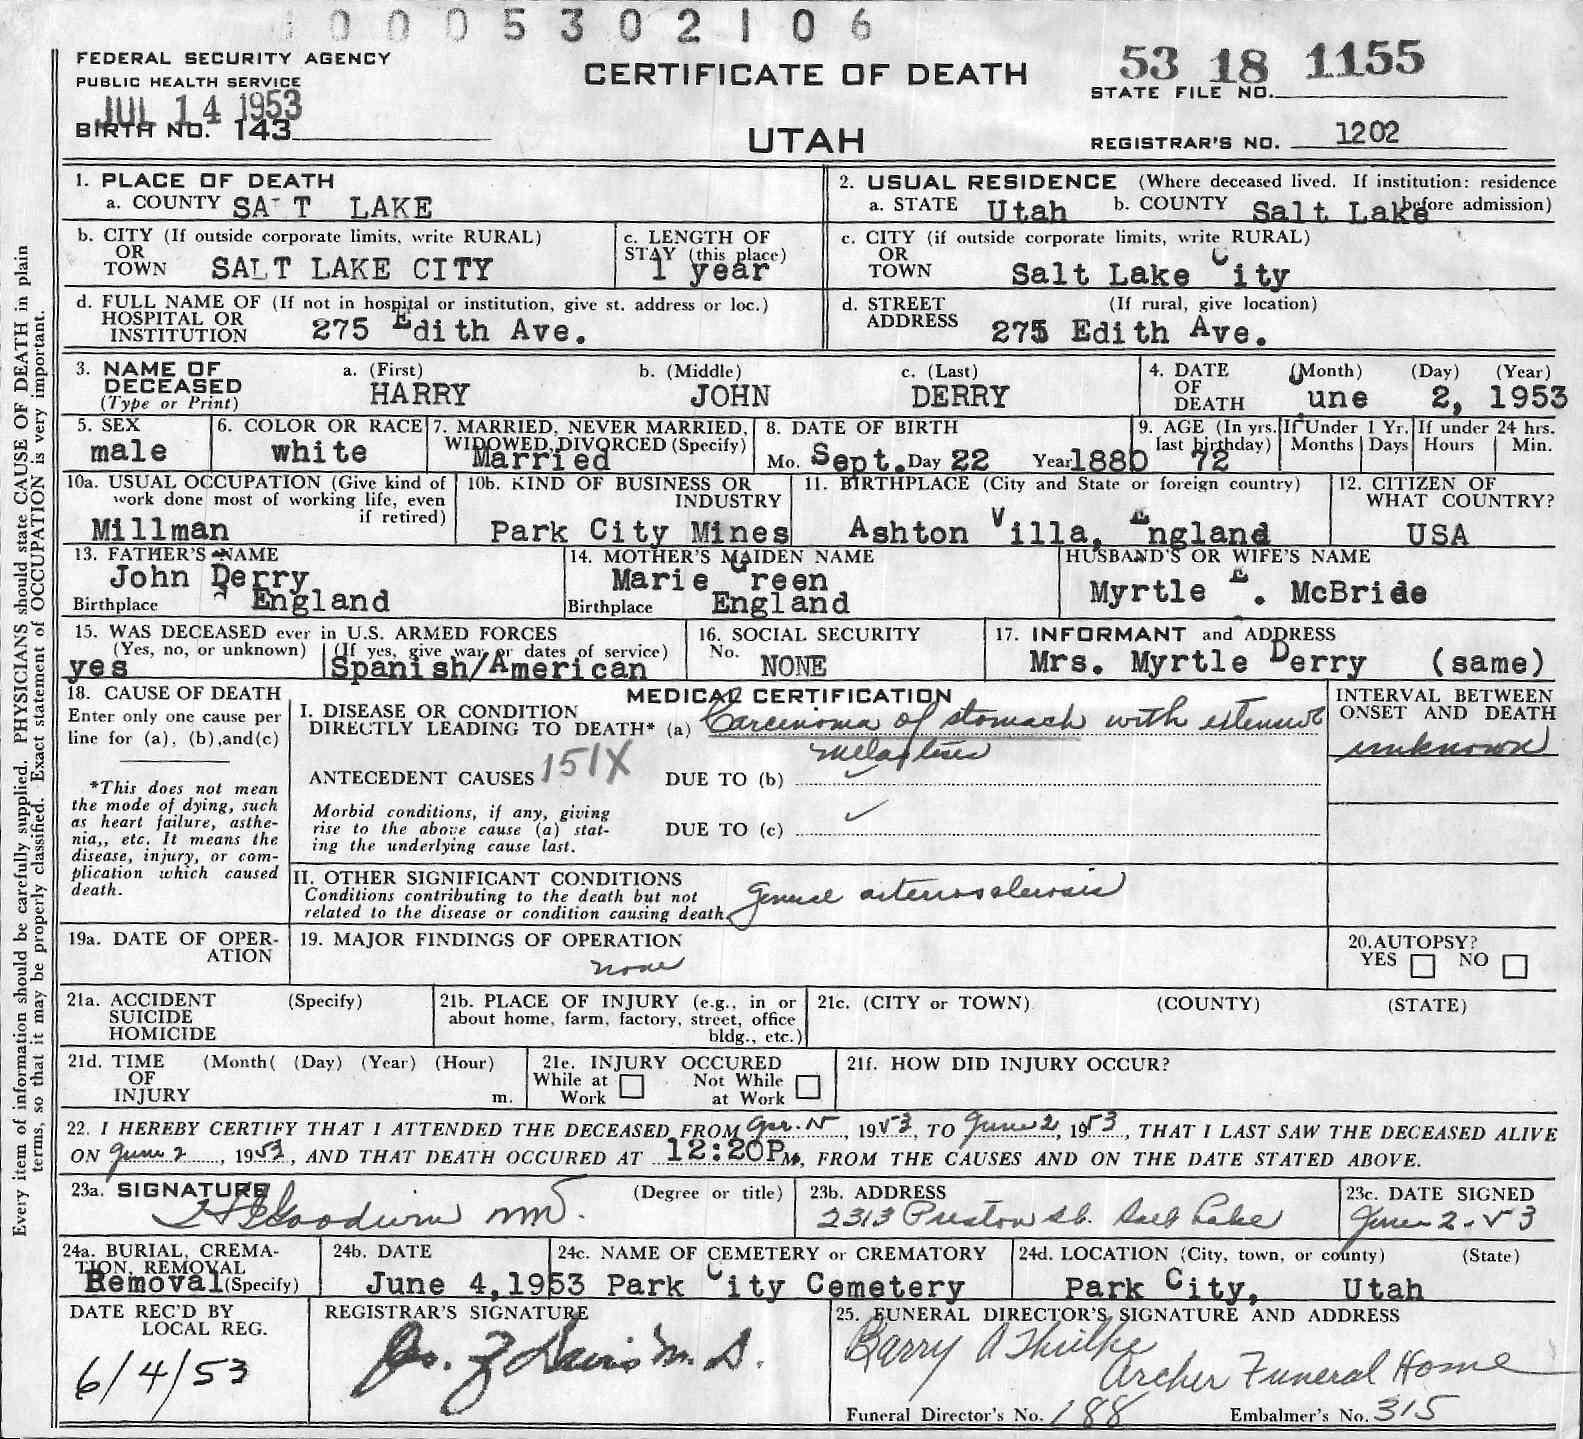 0005302106
FEDERAL SECURITY AGENCY
PUBLIC HEALTH SERVICE
JUL 14 1953
BIRTH NO. 143
CERTIFICATE OF DEATH
UTAH
53 18 1155
STATE FILE NO.
REGISTRAR'S NO. 1202
1. PLACE OF DEATH
a. COUNTY SA T LAKE
2. USUAL RESIDENCE (Where deceased lived. If institution: residence before admission)
a. STATE Utah b. COUNTY Salt Lake
b. CITY (If outside corporate limits, write RURAL)
OR
TOWN SALT LAKE CITY
c. LENGTH OF
STAY (this place)
1 year
c. CITY (if outside corporate limits, write RURAL)
OR
TOWN Salt Lake City
d. FULL NAME OF (If not in hospital or institution, give st. address or loc.)
HOSPITAL OR
INSTITUTION 275 Edith Ave.
d. STREET (If rural, give location)
ADDRESS 275 Edith Ave.
3. NAME OF
DECEASED
(Type or Print)
a. (First) b. (Middle) c. (Last)
HARRY JOHN DERRY
4. DATE
OF
DEATH
(Month) (Day) (Year)
June 2, 1953
5. SEX
male
6. COLOR OR RACE
white
7. MARRIED, NEVER MARRIED,
WIDOWED, DIVORCED (Specify)
Married
8. DATE OF BIRTH
Mo. Sept. Day 22 Year 1880
9. AGE (In yrs.
last birthday)
72
If Under 1 Yr.
Months Days
If under 24 hrs.
Hours Min.
10a. USUAL OCCUPATION (Give kind of
work done most of working life, even
if retired)
Millman
10b. KIND OF BUSINESS OR
INDUSTRY
Park City Mines
11. BIRTHPLACE (City and State or foreign country)
Ashton Villa, England
12. CITIZEN OF
WHAT COUNTRY?
USA
13. FATHER'S NAME
John Derry
Birthplace England
14. MOTHER'S MAIDEN NAME
Marie Green
Birthplace England
HUSBAND'S OR WIFE'S NAME
Myrtle E. McBride
15. WAS DECEASED ever in U.S. ARMED FORCES
(Yes, no, or unknown) (If yes, give war or dates of service)
yes Spanish/American
16. SOCIAL SECURITY
No.
NONE
17. INFORMANT and ADDRESS
Mrs. Myrtle Derry (same)
18. CAUSE OF DEATH
Enter only one cause per
line for (a), (b),and(c)
*This does not mean
the mode of dying, such
as heart failure, asthe-
nia,, etc. It means the
disease, injury, or com-
plication which caused
death.
MEDICAL CERTIFICATION
I. DISEASE OR CONDITION
DIRECTLY LEADING TO DEATH* (a) Carcinoma of stomach with extensive
metastises
ANTECEDENT CAUSES 151X DUE TO (b)
Morbid conditions, if any, giving
rise to the above cause (a) stat-
ing the underlying cause last.
DUE TO (c)
INTERVAL BETWEEN
ONSET AND DEATH
unknown
II. OTHER SIGNIFICANT CONDITIONS
Conditions contributing to the death but not
related to the disease or condition causing death.
General arteriosclerosis
19a. DATE OF OPER-
ATION
19. MAJOR FINDINGS OF OPERATION
none
20. AUTOPSY?
YES NO
21a. ACCIDENT (Specify)
SUICIDE
HOMICIDE
21b. PLACE OF INJURY (e.g., in or
about home, farm, factory, street, office
bldg., etc.)
21c. (CITY or TOWN) (COUNTY) (STATE)
21d. TIME (Month( (Day) (Year) (Hour)
OF
INJURY m.
21e. INJURY OCCURED
While at Not While
Work at Work
21f. HOW DID INJURY OCCUR?
22. I HEREBY CERTIFY THAT I ATTENDED THE DECEASED FROM Apr. 15, 1953, TO June 2, 1953, THAT I LAST SAW THE DECEASED ALIVE
ON June 2, 1953, AND THAT DEATH OCCURED AT 12:20P M., FROM THE CAUSES AND ON THE DATE STATED ABOVE.
23a. SIGNATURE (Degree or title)
Goodwin MD.
23b. ADDRESS
2313 Preston St. Salt Lake
23c. DATE SIGNED
June 2-53
24a. BURIAL, CREMA-
TION, REMOVAL
Removal (Specify)
24b. DATE
June 4, 1953
24c. NAME OF CEMETERY or CREMATORY
Park City Cemetery
24d. LOCATION (City, town, or county) (State)
Park City, Utah
DATE REC'D BY
LOCAL REG.
6/4/53
REGISTRAR'S SIGNATURE
M.D.
25. FUNERAL DIRECTOR'S SIGNATURE AND ADDRESS
Barry A
Archer Funeral Home
Funeral Director's No. 188 Embalmer's No. 315
Every item of information should be carefully supplied. PHYSICIANS should state CAUSE OF DEATH in plain
terms, so that it may be properly classified. Exact statement of OCCUPATION is very important.